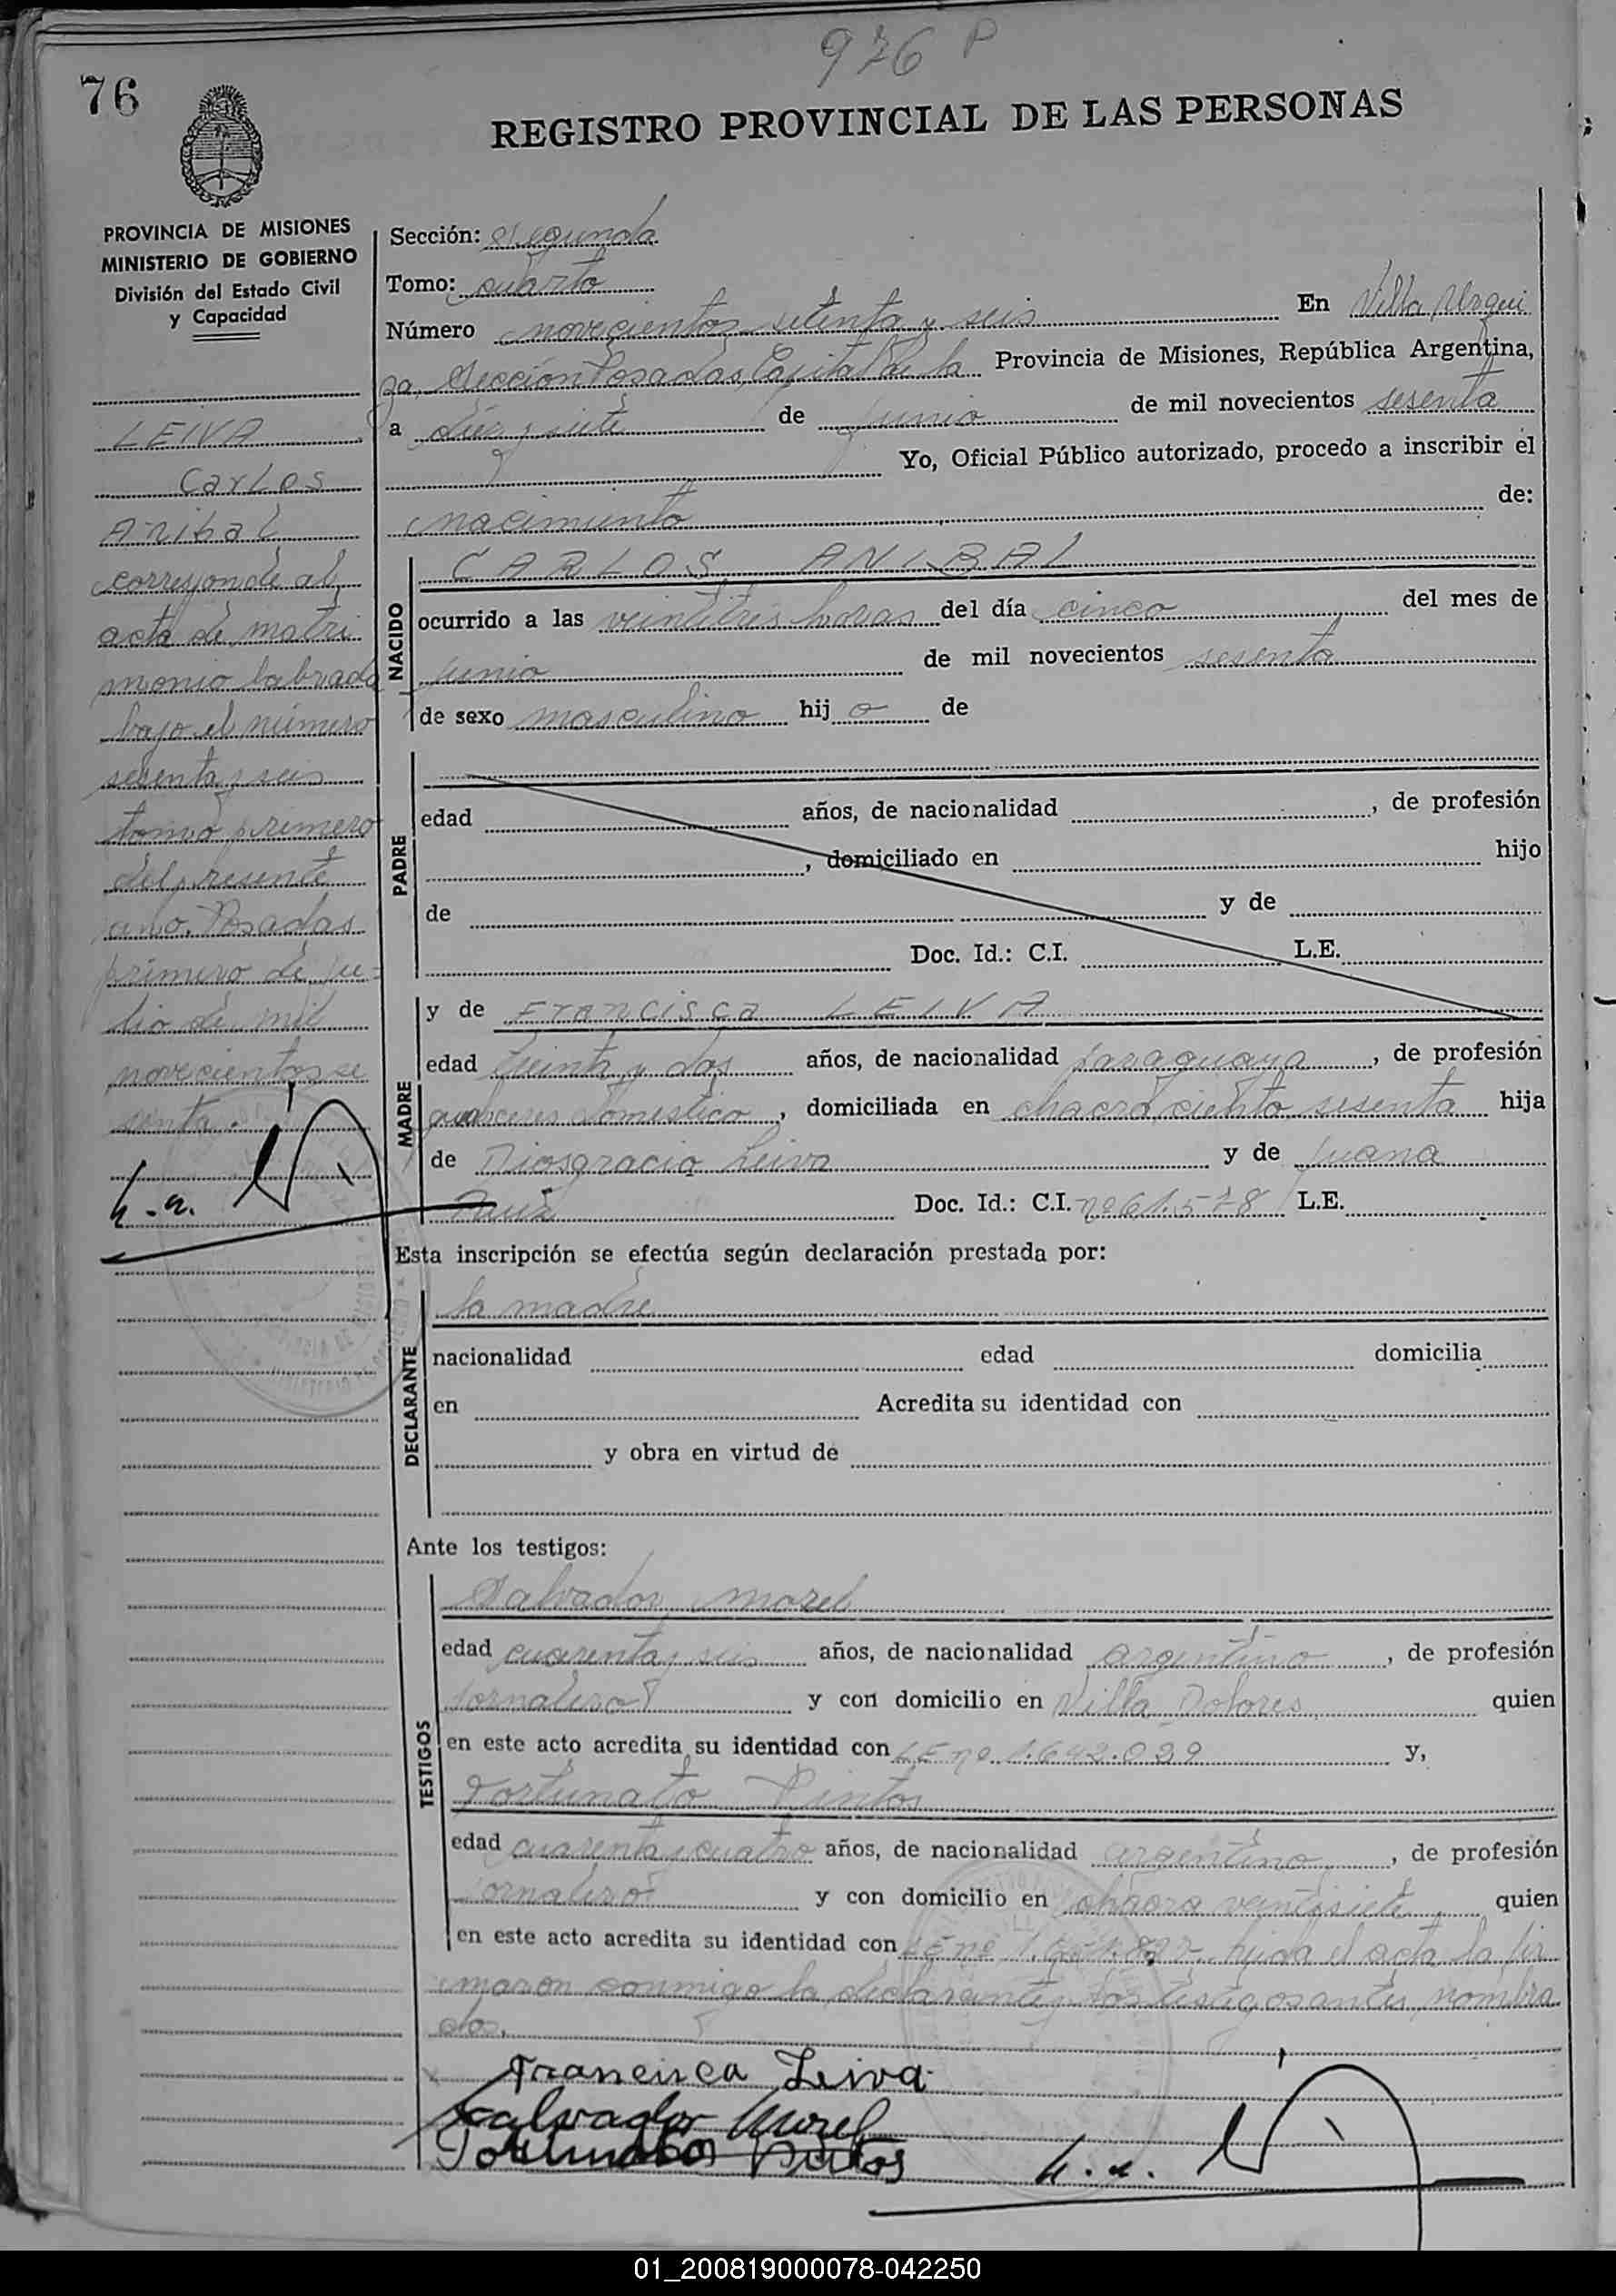 976 P
76
REGISTRO PROVINCIAL DE LAS PERSONAS
PROVINCIA DE MISIONES
MINISTERIO DE GOBIERNO
División del Estado Civil
y Capacidad
LEIVA
Carlos
Anibal
corresponde al
acta de matri
monio labrada
bajo el número
sesenta y seis
tomo primero
del presente
año. Posadas
primero de ju-
lio de mil
novecientos se
senta.
Sección: segunda
Tomo: cuarto
Número novecientos setenta y seis En Villa Urqui
za, Sección Posadas, Capital de la Provincia de Misiones, República Argentina,
a diez y siete de junio de mil novecientos sesenta
Yo, Oficial Público autorizado, procedo a inscribir el
nacimiento de:
NACIDO
CARLOS ANIBAL
ocurrido a las veintitres horas del día cinco del mes de
junio de mil novecientos sesenta
de sexo masculino hijo de
PADRE
edad años, de nacionalidad , de profesión
, domiciliado en hijo
de y de
Doc. Id.: C.I. L.E.
MADRE
y de Francisca LEIVA
edad treinta y dos años, de nacionalidad paraguaya, de profesión
quehaceres domestico, domiciliada en chacra ciento sesenta hija
de Diosgracia Leiva y de Juana
Ruiz Doc. Id.: C.I. nº 61.578 L.E.
Esta inscripción se efectúa según declaración prestada por:
DECLARANTE
la madre
nacionalidad edad domicilia
en Acredita su identidad con
y obra en virtud de
Ante los testigos:
TESTIGOS
Salvador Morel
edad cuarenta y seis años, de nacionalidad argentino, de profesión
jornalero y con domicilio en Villa Dolores quien
en este acto acredita su identidad con LE nº 1.642.039 y,
Fortunato Pintos
edad cuarenta y cuatro años, de nacionalidad argentino, de profesión
jornalero y con domicilio en chacra veintisiete quien
en este acto acredita su identidad con LE nº leida el acta la fir
maron conmigo la declarante y los testigos antes nombra
dos.
Francisca Leiva
Salvador Morel
Fortunato Pintos
01_200819000078-042250